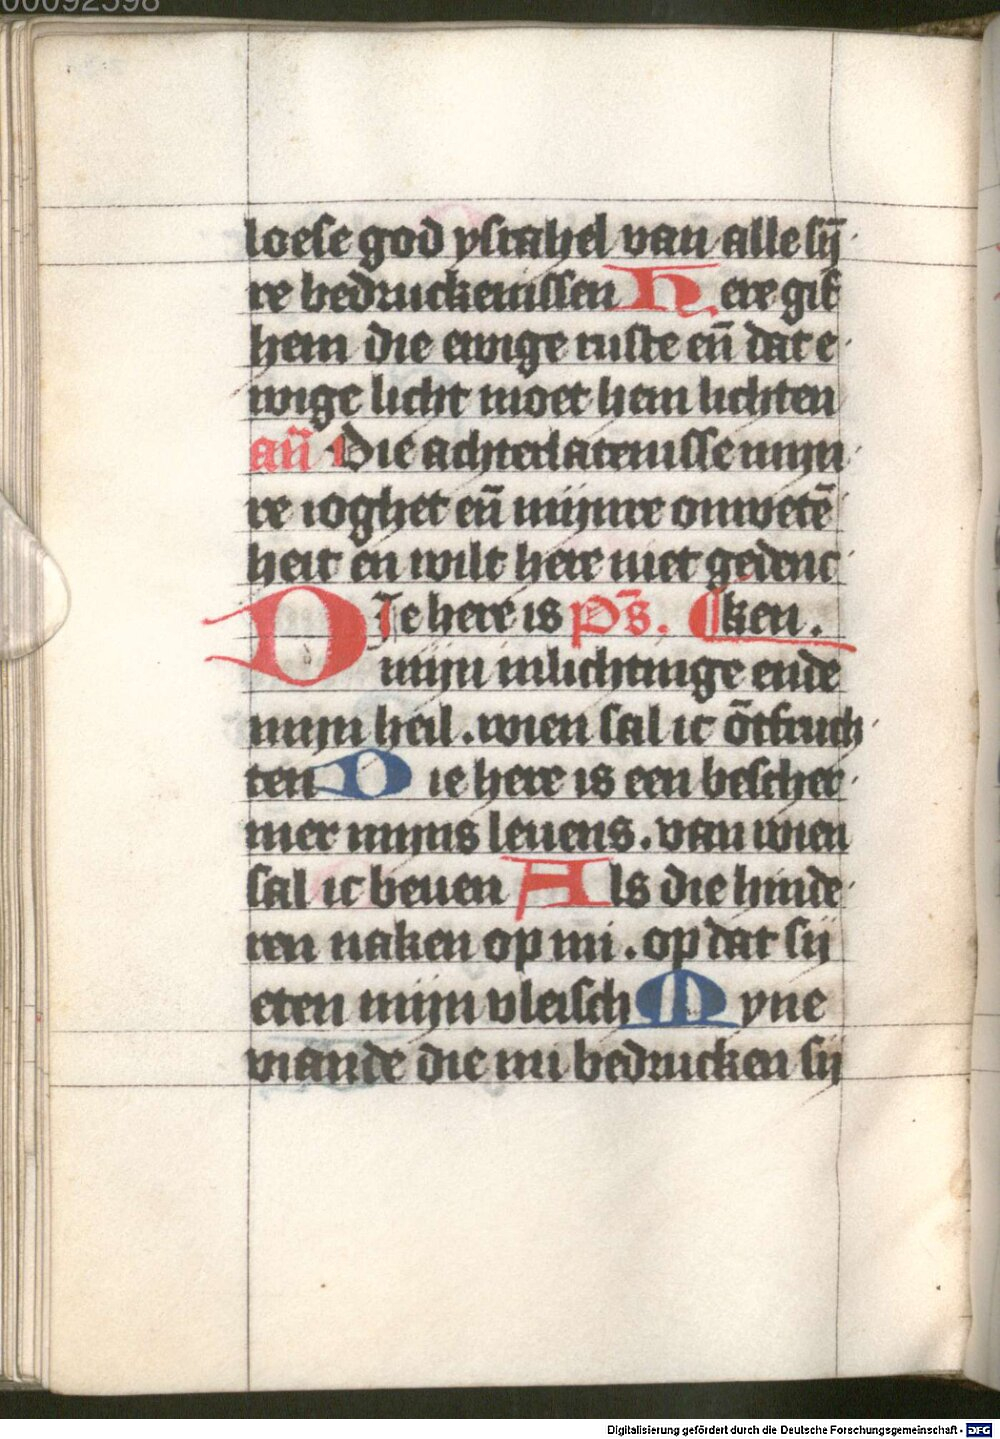 00092598
loese god ysrahel van alle sij̄
re bedruckenissen Here gif
hem die ewige ruste en̄ dat e
wige licht moet hem lichten
an̄ Die achterlatenisse mijn
re ioghet en̄ mijnre onwetē
heit en wilt here niet gedenc
DIe here is ps̄. ken.
mijn inlichtinge ende
mijn heil. wien sal ic ōtfruch
ten Die here is een bescher
mer mijns leuens. van wien
sal ic beuen Als die hinde
ren naken op mi. op dat sij
eten mijn vleisch Myne
viande die mi bedrucken sij
Digitalisierung gefördert durch die Deutsche Forschungsgemeinschaft - DFG